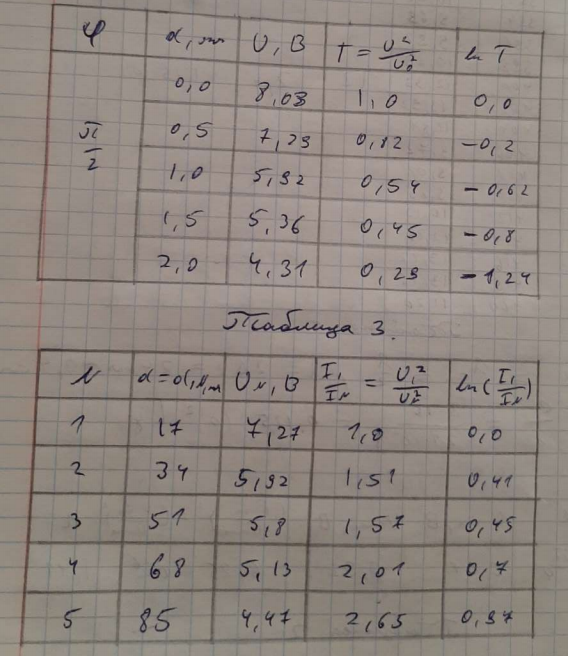 φ d, мм U, В T = U²/U₀² ln T
π/2 0,0 8,03 1,0 0,0
0,5 7,29 0,82 -0,2
1,0 5,92 0,54 -0,62
1,5 5,36 0,45 -0,8
2,0 4,31 0,29 -1,24
Таблица 3.
N d=d₁N, мм U_N, В I₁/I_N = U₁²/U_N² ln(I₁/I_N)
1 17 7,27 1,0 0,0
2 34 5,92 1,51 0,41
3 51 5,8 1,57 0,45
4 68 5,13 2,01 0,7
5 85 4,47 2,65 0,97